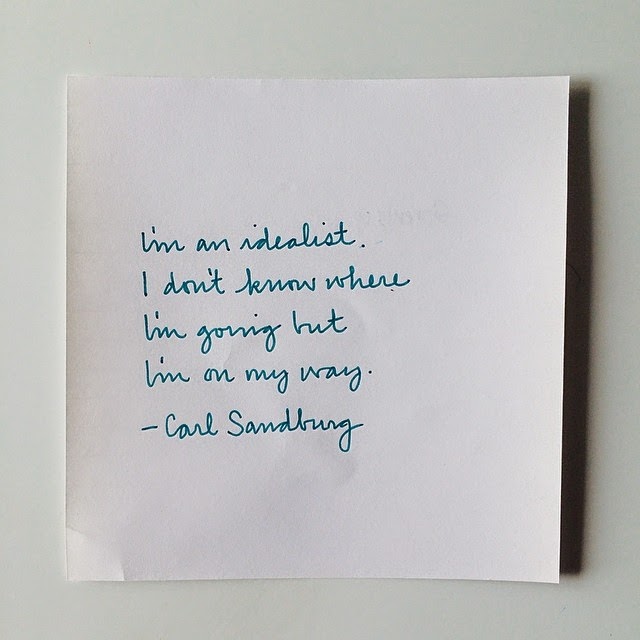 I'm an idealist.
I don't know where
I'm going but
I'm on my way.
- Carl Sandburg